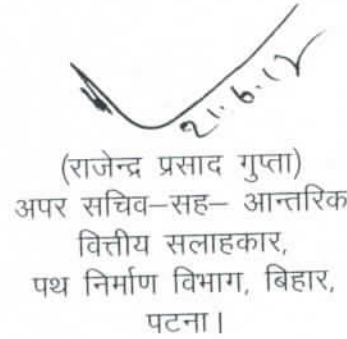 21.6.12
(राजेन्द्र प्रसाद गुप्ता)
अपर सचिव–सह– आन्तरिक
वित्तीय सलाहकार,
पथ निर्माण विभाग, बिहार,
पटना।